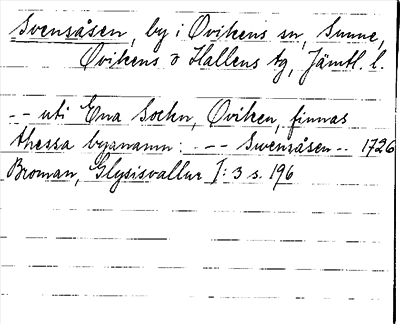 Svensåsen, by i Ovikens sn, Sunne,
Ovikens o Hallens tg, Jämtl. l.
-- uti Ena Sochn, Oviken, finnas
thessa byanamn: -- Swensåsen -- 1726
Broman, Glysisvallur I: 3 s. 196